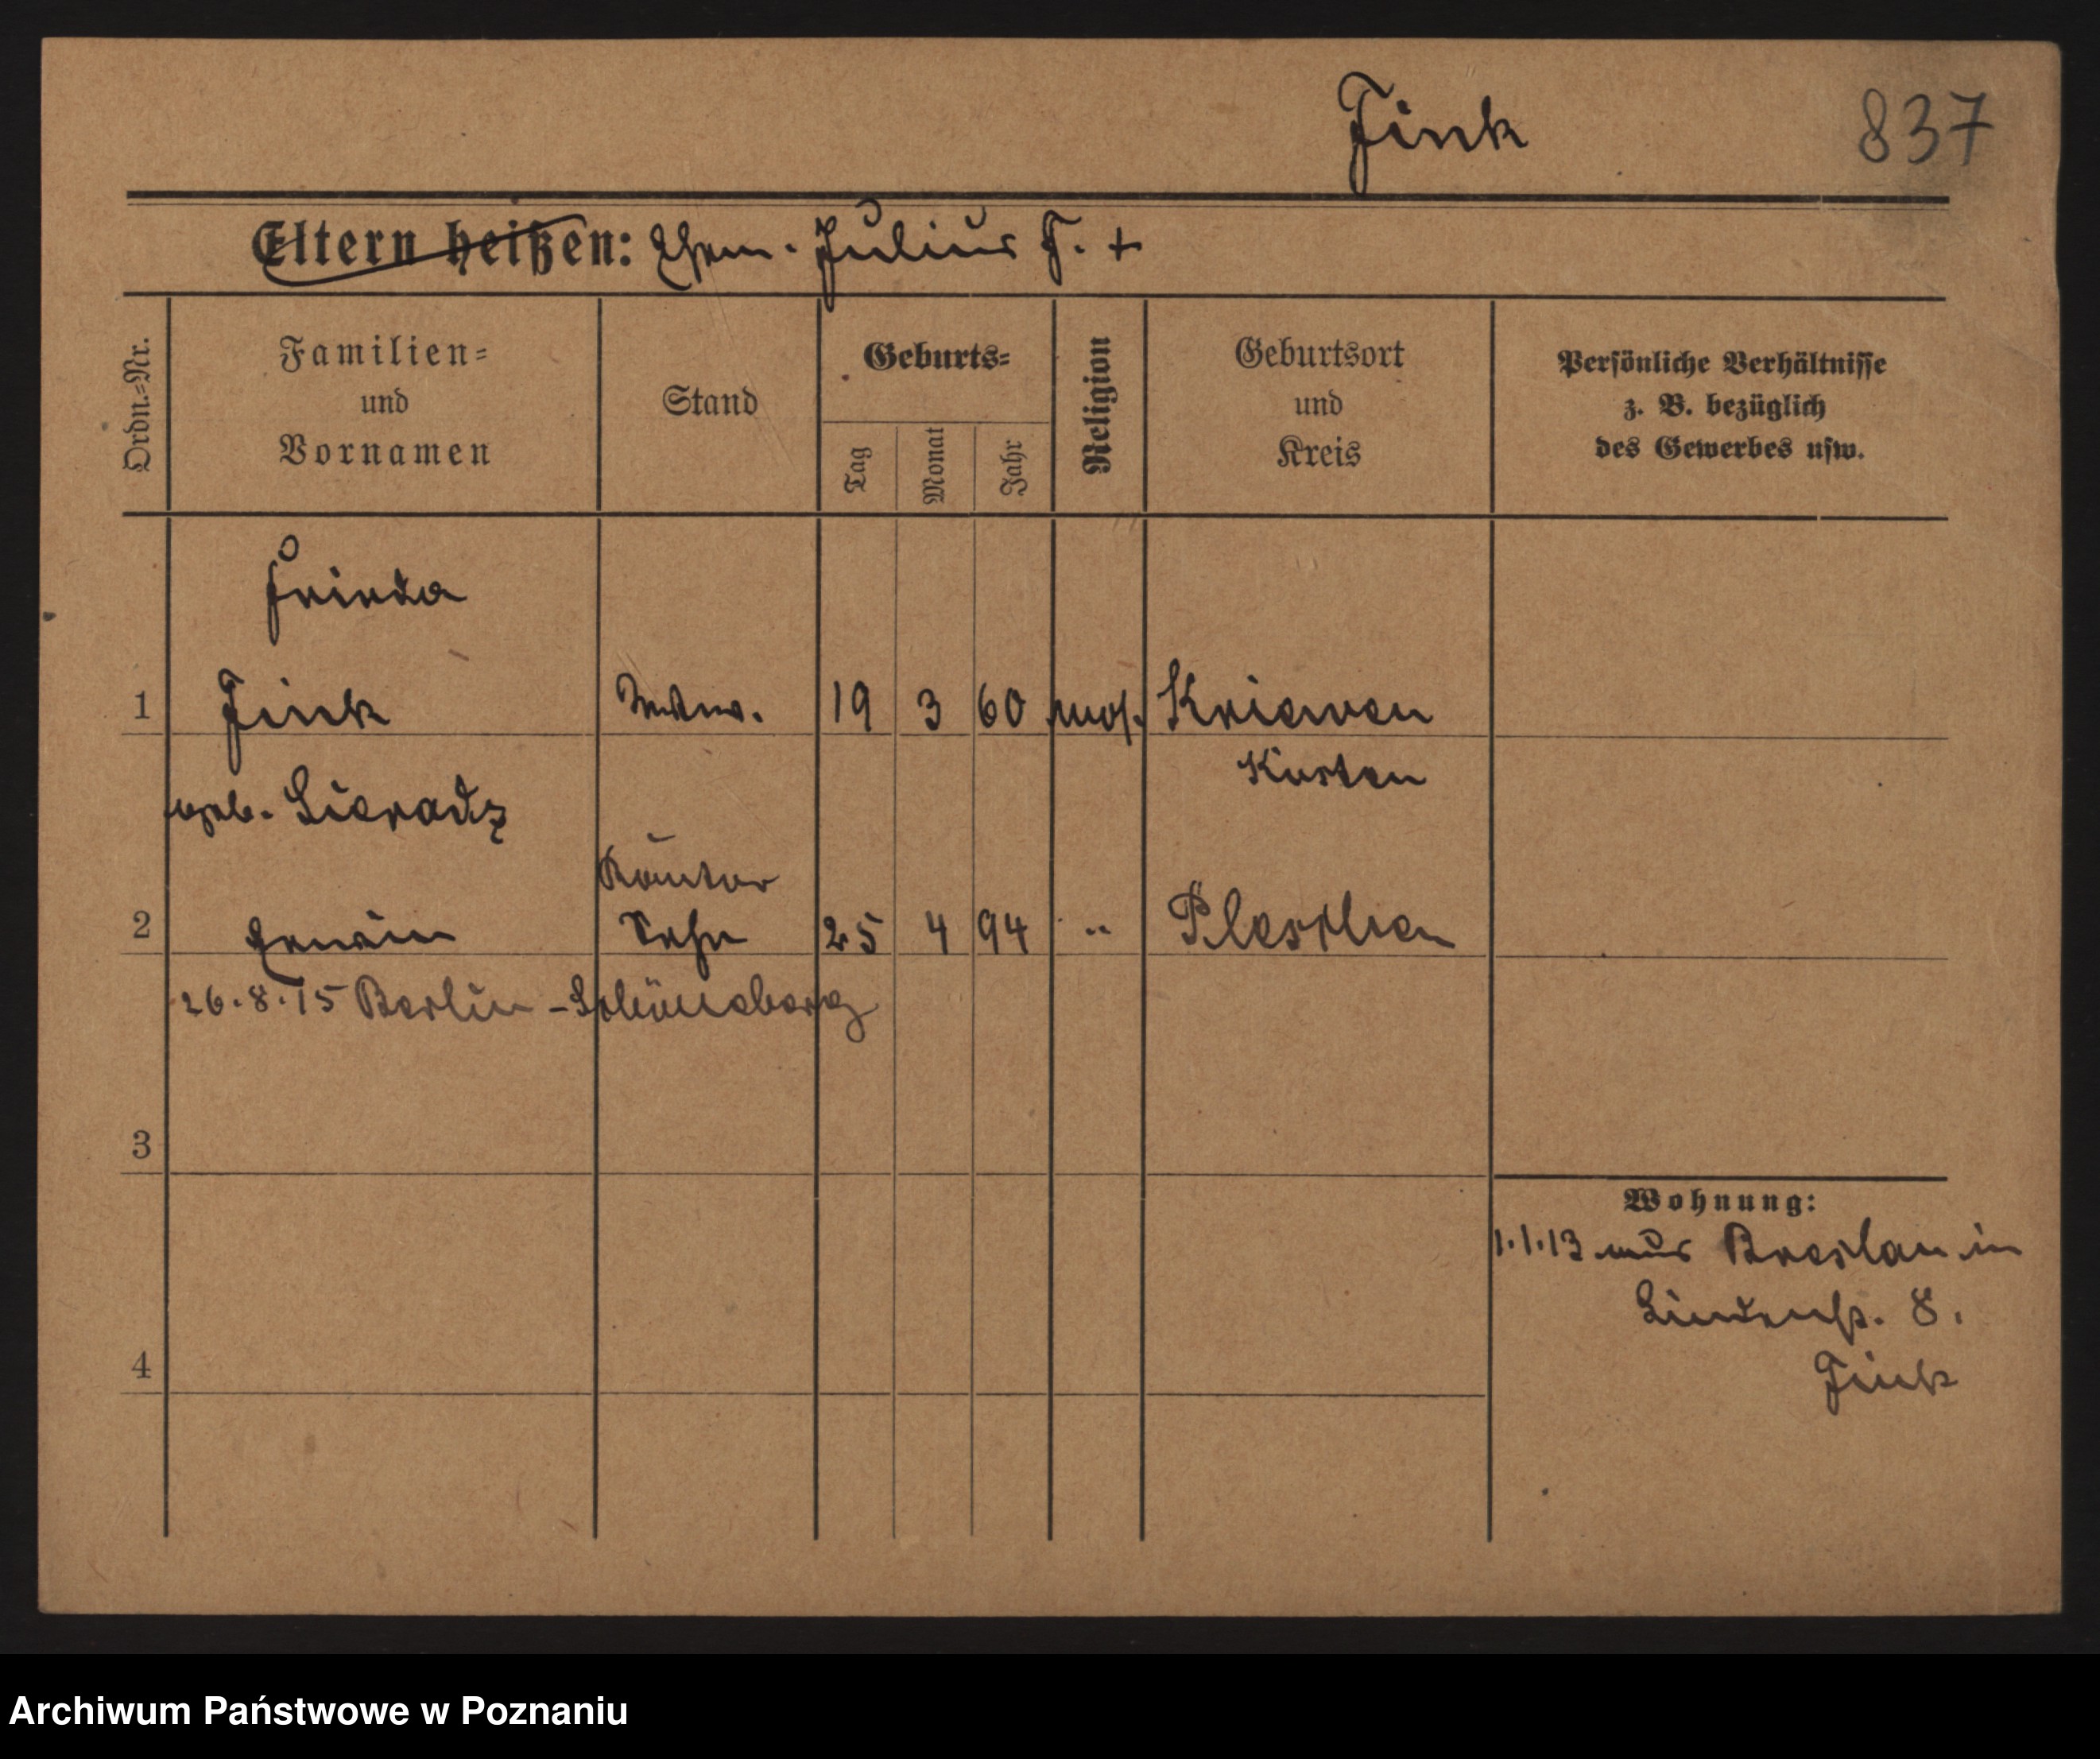 Fink
837
Eltern heißen: Ehem. Julius F. +
Ordn.=Nr.
Familien=
und
Vornamen
Stand
Geburts=
Tag
Monat
Jahr
Religion
Geburtsort
und
Kreis
Persönliche Verhältnisse
z. B. bezüglich
des Gewerbes usw.
Frieda
1 Fink Witwe. 19 3 60 mos. Kriewen
Kosten
geb. Sieradz
Kantor
2 Erwin Sohn 25 4 94 " Pleschen
26.8.15 Berlin-Schöneberg
3
4
Wohnung:
1.1.13 aus Breslau in
Lindenstr. 8.
Fink
Archiwum Państwowe w Poznaniu